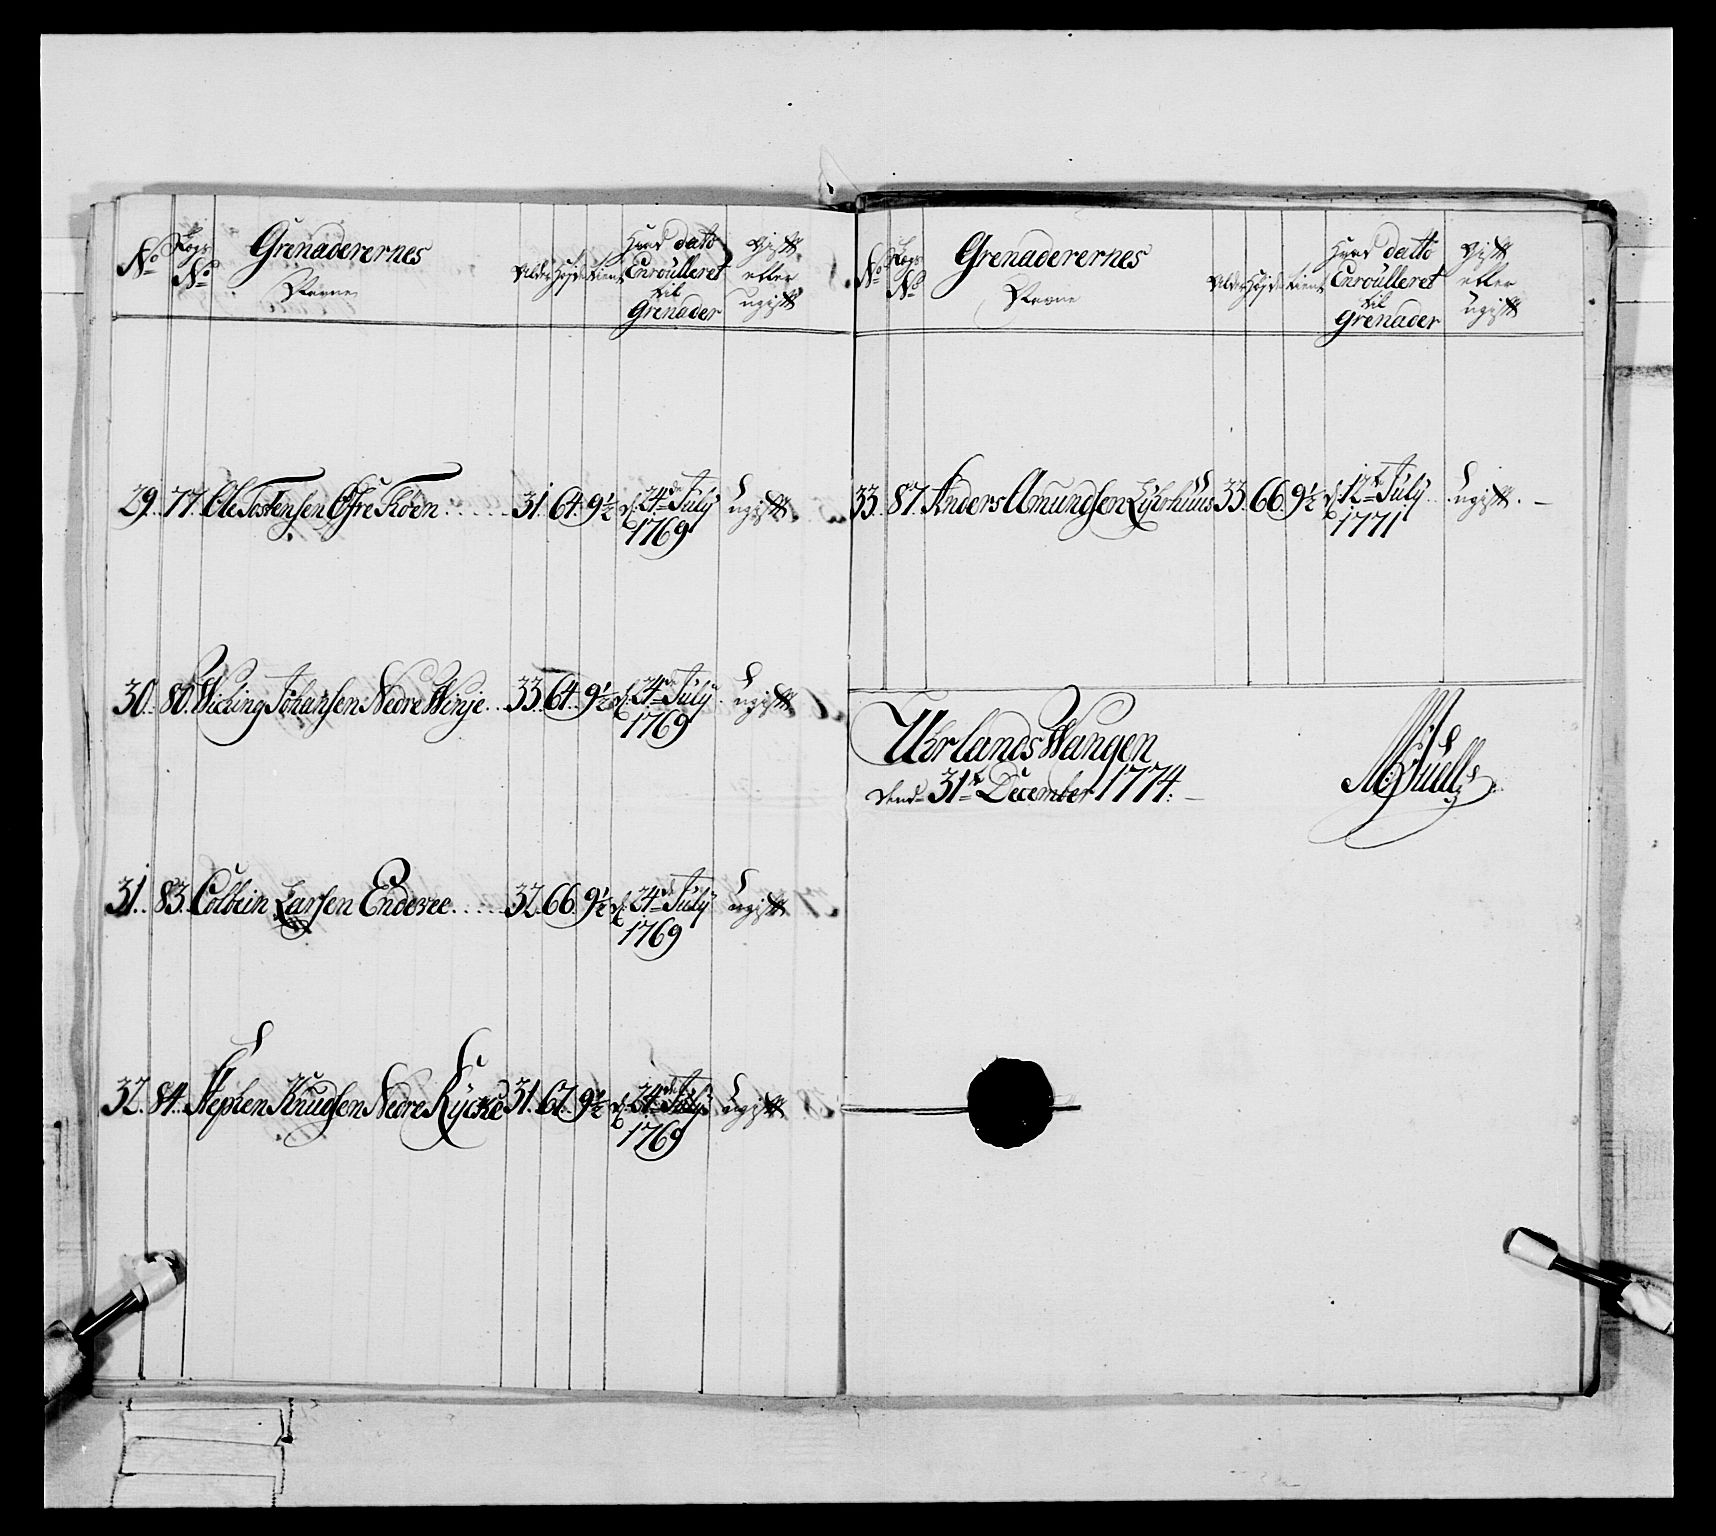 No
Lægs No
Grenaderernes
Navne
Alder
Høyde
tient
Hvad datto Enroulleret til Grenader
Gift eller ugift
29. 77. Ole Tostensen Øfre Fiøen . . . . . 31. 64. 9½ d. 24de July 1769 ugift
30. 80. Wiching Johansen Nedre Winje . . 33. 64. 9½ d. 24de July 1769 ugift
31. 83. Colbein Larsen Enderee . . . . . 32. 66. 9½ d. 24de July 1769 ugift
32. 84. Stephen Knudsen Nedre 31. 67. 9½ d. 24de July 1769 ugift
No
Lægs No
Grenaderernes
Navne
Alder
Høyde
tient
Hvad datto Enroulleret til Grenader
Gift eller ugift
33. 87. Anders Amundsen 33. 66. 9½ d. 12te July 1771 ugift. —
Uhrlands Wangen
dend 31te December 1774. —